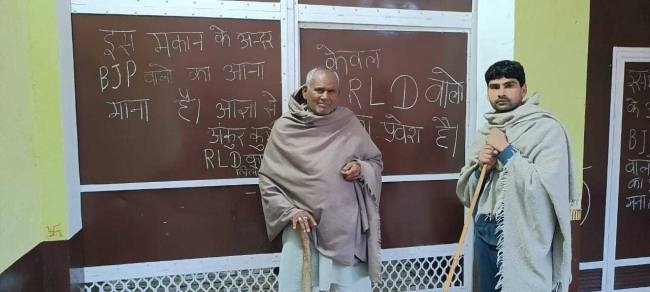 इस मकान के अन्दर
BJP वालो का आना
माना है। आज्ञा से
अंकुर कु
RLD
केवल
RLD वालो
प्रवेश है।
इस
के अ
BJ
वालो
का
मना